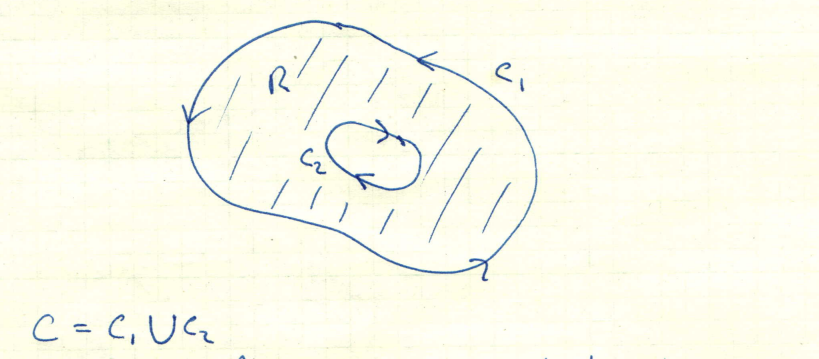 R
C₁
C₂
C = C₁ ∪ C₂